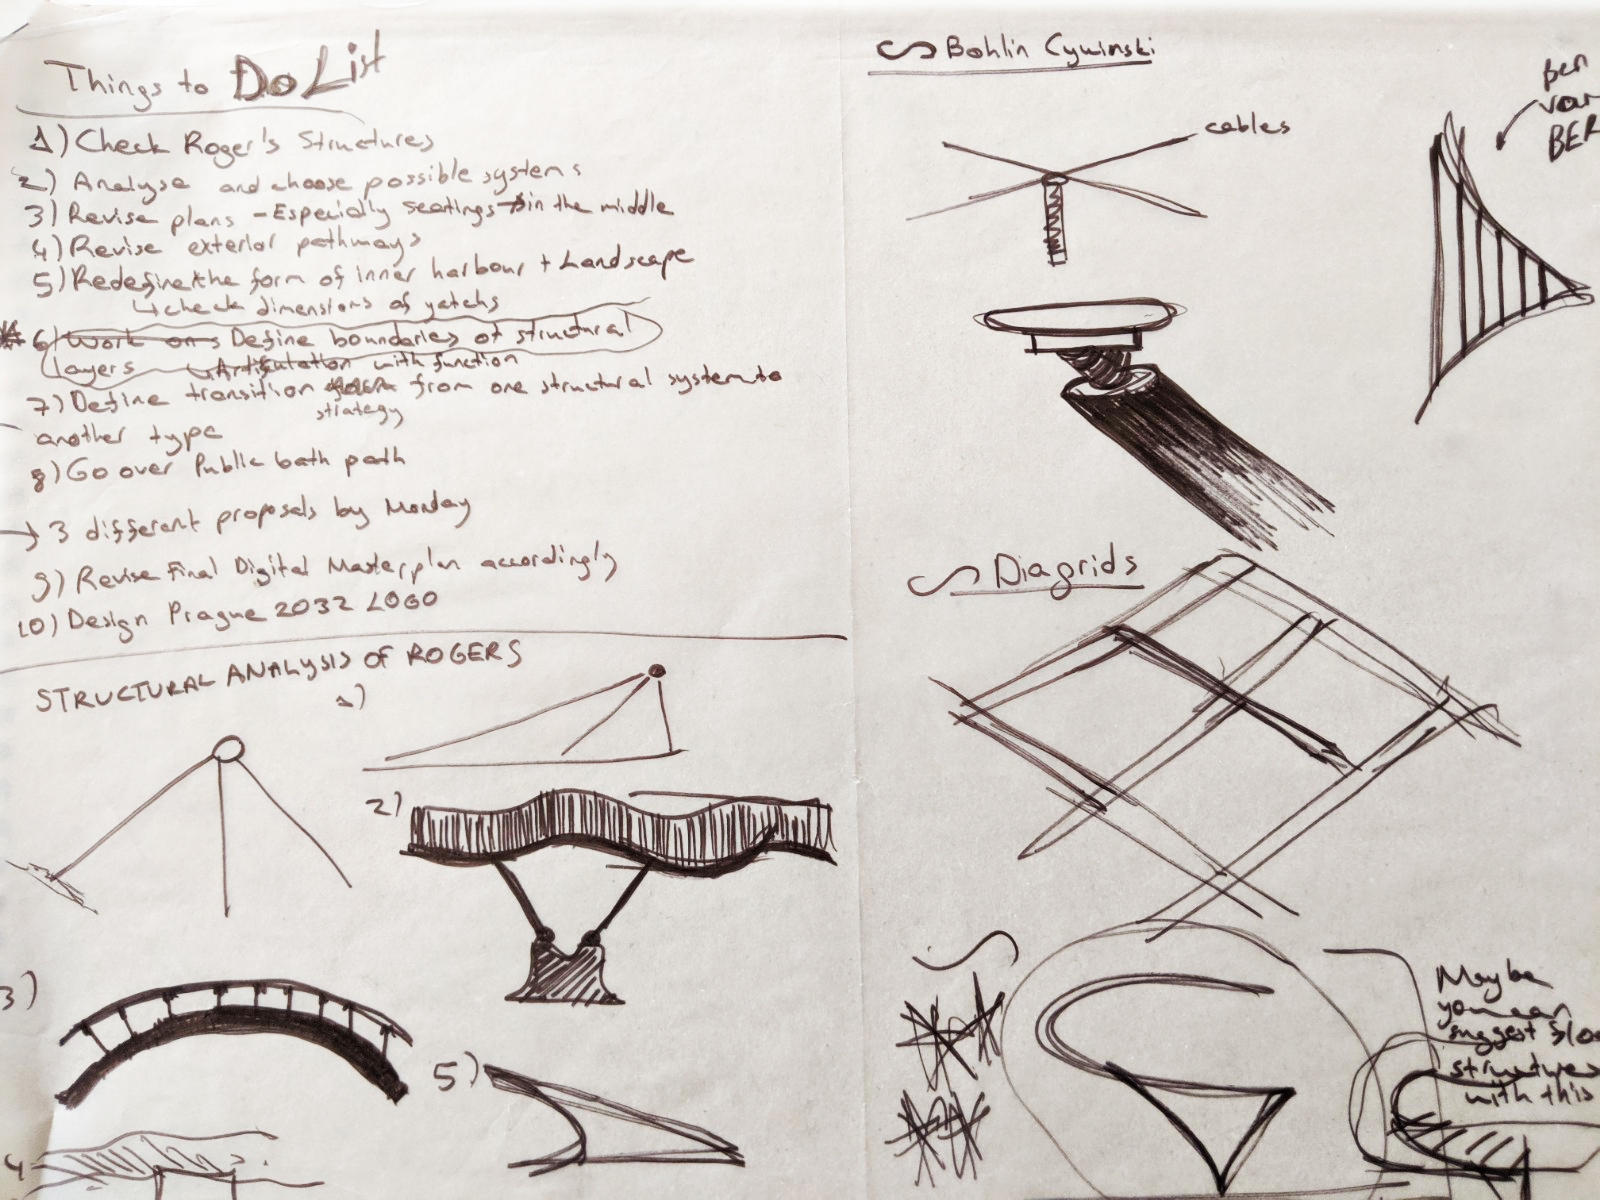 Things to Do List
1) Check Roger's Structures
2) Analyse and choose possible systems
3) Revise plans - Especially seatings in the middle
4) Revise exterior pathways
5) Redefine the form of inner harbour + Landscape
↳check dimensions of yatchs
6) Work on Define boundaries of structural
layers ↳ Articulation with function
7) Define transition from one structural system to
strategy
another type
8) Go over Public bath path
→ 3 different proposals by Monday
9) Revise Final Digital Masterplan accordingly
10) Design Prague 2032 LOGO
STRUCTURAL ANALYSIS OF ROGERS
1)
2)
3)
4
5)
Bohlin Cywinski
cables
Ben
van
BER
Diagrids
Maybe
you can
suggest
structures
with this